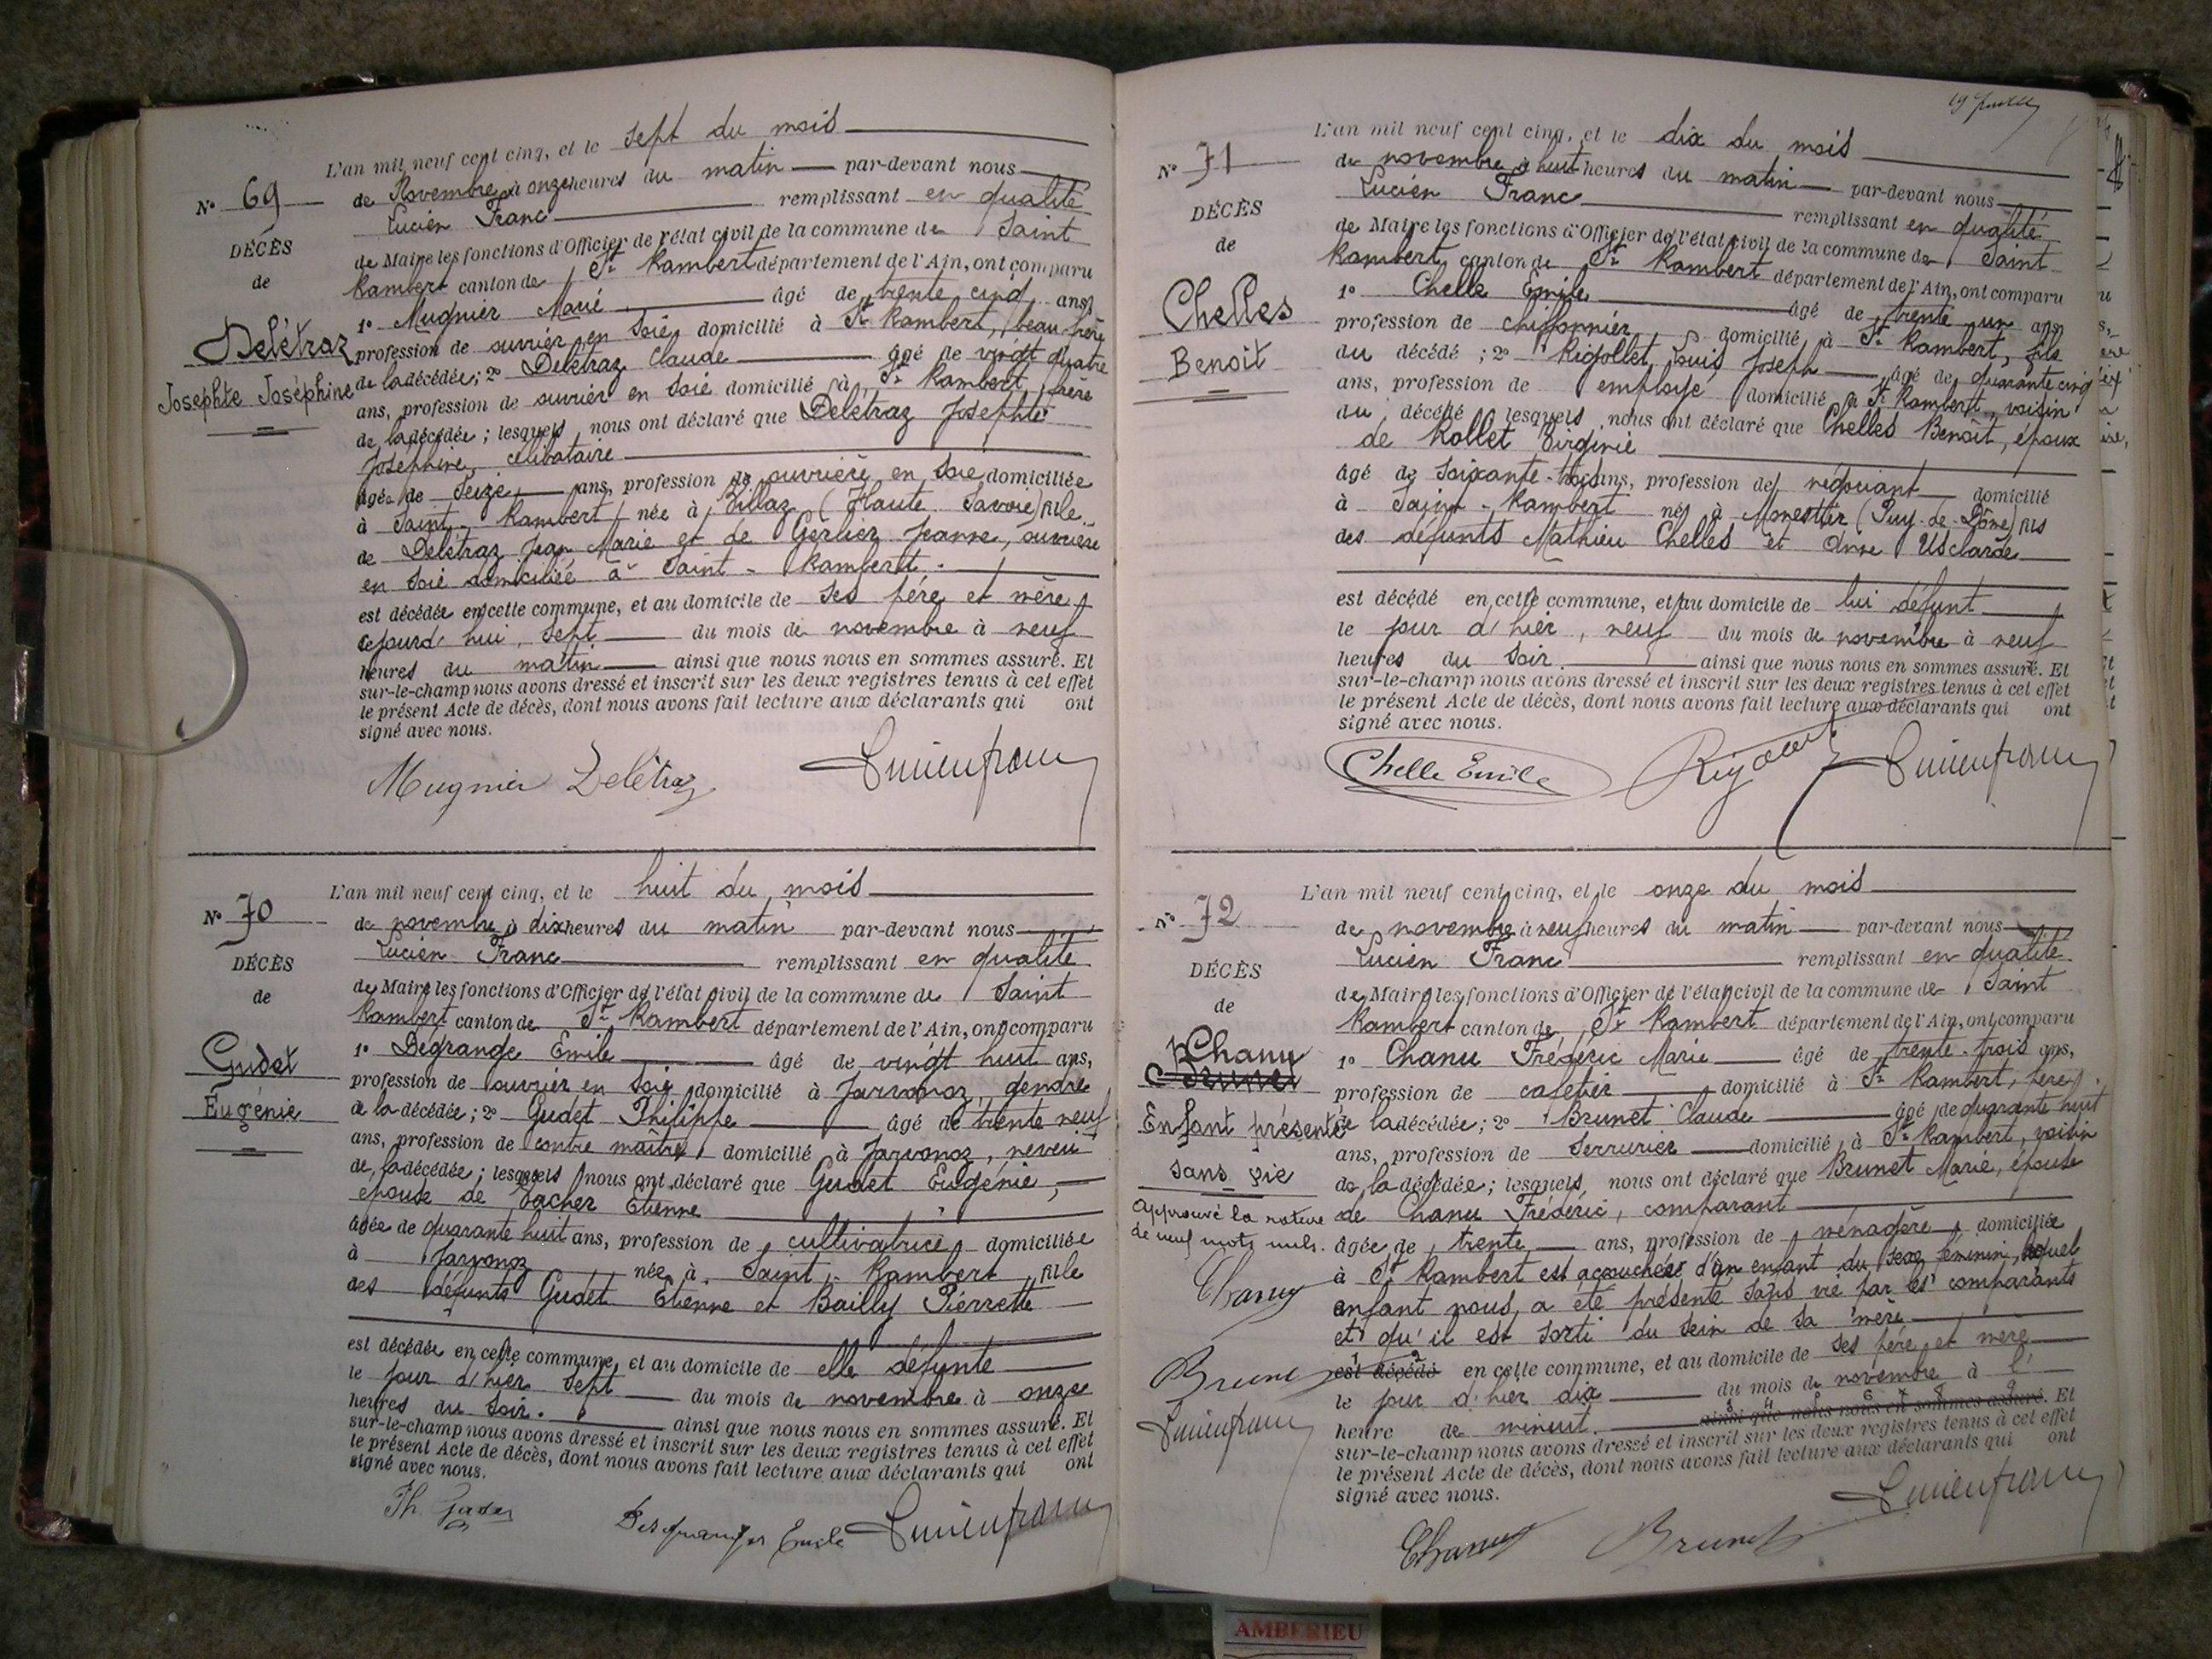 L'an mil neuf cent cinq, et le sept du mois
de Novembre à onze heures du matin par-devant nous
Lucien Franc remplissant en qualité
de Maire les fonctions d'Officier de l'état civil de la commune de Saint
Rambert canton de St Rambert département de l'Ain, ont comparu
1° Mugnier Marie âgé de trente cinq ans
profession de ouvrier en soie domicilié à St Rambert, beau-frère
de la décédée; 2° Delétraz Claude âgé de vingt quatre
ans, profession de ouvrier en soie domicilié à St Rambert, frère
de la décédée; lesquels nous ont déclaré que Delétraz Josephte
Joséphine, célibataire
âgée de seize ans, profession de ouvrière en soie domiciliée
à Saint-Rambert née à Villaz (Haute Savoie) fille
de Delétraz Jean Marie et de Gerlier Jeanne, ouvrière
en soie domiciliée à Saint-Rambert.
est décédée en cette commune, et au domicile de ses père et mère
cejourd'hui, sept du mois de novembre à neuf
heures du matin ainsi que nous nous en sommes assuré. Et
sur-le-champ nous avons dressé et inscrit sur les deux registres tenus à cet effet
le présent Acte de décès, dont nous avons fait lecture aux déclarants qui ont
signé avec nous.
N° 69
DÉCÈS
de
Delétraz
Josephte Joséphine
Mugnier Delétraz Lucien franc
L'an mil neuf cent cinq, et le huit du mois
de novembre à dix heures du matin par-devant nous
Lucien Franc remplissant en qualité
de Maire les fonctions d'Officier de l'état civil de la commune de Saint
Rambert canton de St Rambert département de l'Ain, ont comparu
1° Degrange Emile âgé de vingt huit ans,
profession de ouvrier en soie domicilié à Javornoz, gendre
de la décédée; 2° Gudet Philippe âgé de trente neuf
ans, profession de contre maître domicilié à Javornoz, neveu
de la décédée; lesquels nous ont déclaré que Gudet Eugénie,
épouse de Vacher Etienne
âgée de quarante huit ans, profession de cultivatrice domiciliée
à Javornoz née à Saint-Rambert fille
des défunts Gudet Etienne et Bailly Pierrette
est décédée en cette commune, et au domicile de elle défunte
le jour d'hier sept du mois de novembre à onze
heures du soir. ainsi que nous nous en sommes assuré. Et
sur-le-champ nous avons dressé et inscrit sur les deux registres tenus à cet effet
le présent Acte de décès, dont nous avons fait lecture aux déclarants qui ont
signé avec nous.
N° 70
DÉCÈS
de
Gudet
Eugénie
Desgranges Emile Lucien franc
L'an mil neuf cent cinq, et le dix du mois
de novembre à huit heures du matin par-devant nous
Lucien Franc remplissant en qualité
de Maire les fonctions d'Officier de l'état civil de la commune de Saint
Rambert canton de St Rambert département de l'Ain, ont comparu
1° Chelle Emile âgé de trente un ans
profession de chiffonnier domicilié à St Rambert, fils
du décédé; 2° Rigollet Louis Joseph âgé de quarante cinq
ans, profession de employé domicilié à St Rambert, voisin
du décédé lesquels nous ont déclaré que Chelles Benoît, époux
de Rollet Virginie
âgé de soixante-trois ans, profession de négociant domicilié
à Saint-Rambert né à Monestier (Puy-de-Dôme) fils
des défunts Mathieu Chelles et Anne Usclarde
est décédé en cette commune, et au domicile de lui défunt
le jour d'hier, neuf du mois de novembre à neuf
heures du soir. ainsi que nous nous en sommes assuré. Et
sur-le-champ nous avons dressé et inscrit sur les deux registres tenus à cet effet
le présent Acte de décès, dont nous avons fait lecture aux déclarants qui ont
signé avec nous.
N° 71
DÉCÈS
de
Chelles
Benoît
Chelle Emile Rigollet Lucien franc
L'an mil neuf cent cinq, et le onze du mois
de novembre à neuf heures du matin par-devant nous
Lucien Franc remplissant en qualité
de Maire les fonctions d'Officier de l'état civil de la commune de Saint
Rambert canton de St Rambert département de l'Ain, ont comparu
1° Chanu Frédéric Marie âgé de trente-trois ans,
profession de cafetier domicilié à St Rambert, père
de la décédée; 2° Brunet Claude âgé de quarante huit
ans, profession de serrurier domicilié à St Rambert, voisin
de la décédée; lesquels nous ont déclaré que Brunet Marie, épouse
de Chanu Frédéric, comparant
âgée de trente ans, profession de ménagère domiciliée
à St Rambert est accouchée d'un enfant du sexe féminin, lequel
enfant nous a été présenté sans vie par les comparants
et qu'il est sorti du sein de sa mère
est décédé en cette commune, et au domicile de ses père et mère
le jour d'hier dix du mois de novembre à l'
heure de minuit. ainsi que nous nous en sommes assuré. Et
sur-le-champ nous avons dressé et inscrit sur les deux registres tenus à cet effet
le présent Acte de décès, dont nous avons fait lecture aux déclarants qui ont
signé avec nous.
N° 72
DÉCÈS
de
Chanu
Brunet
Enfant présenté
sans vie
Approuvé la rature
de neuf mots nuls.
Chanu
Brunet
Lucien franc
Chanu Brunet Lucien franc
AMBERIEU